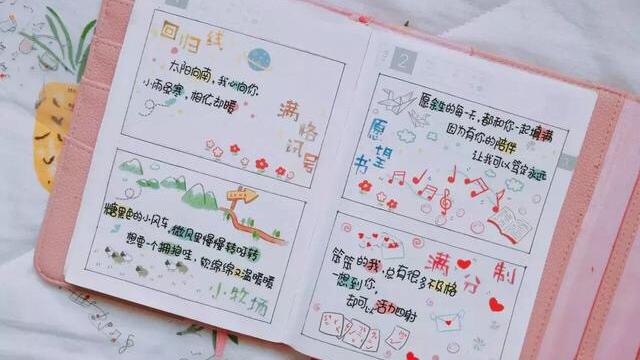 回归线
太阳向南，我心向你
小雨虽寒，相化却暖
满格讯号
糖果色的小风车，微风里慢慢转呀转
想要一个拥抱哇，软绵绵又温暖暖
小牧场
2
愿余生的每一天，都和你一起填满
因为有你的陪伴
让我可以笃定永远
愿望书
满分制
笨笨的我，总有很多不及格
一想到你，
却可以活力四射